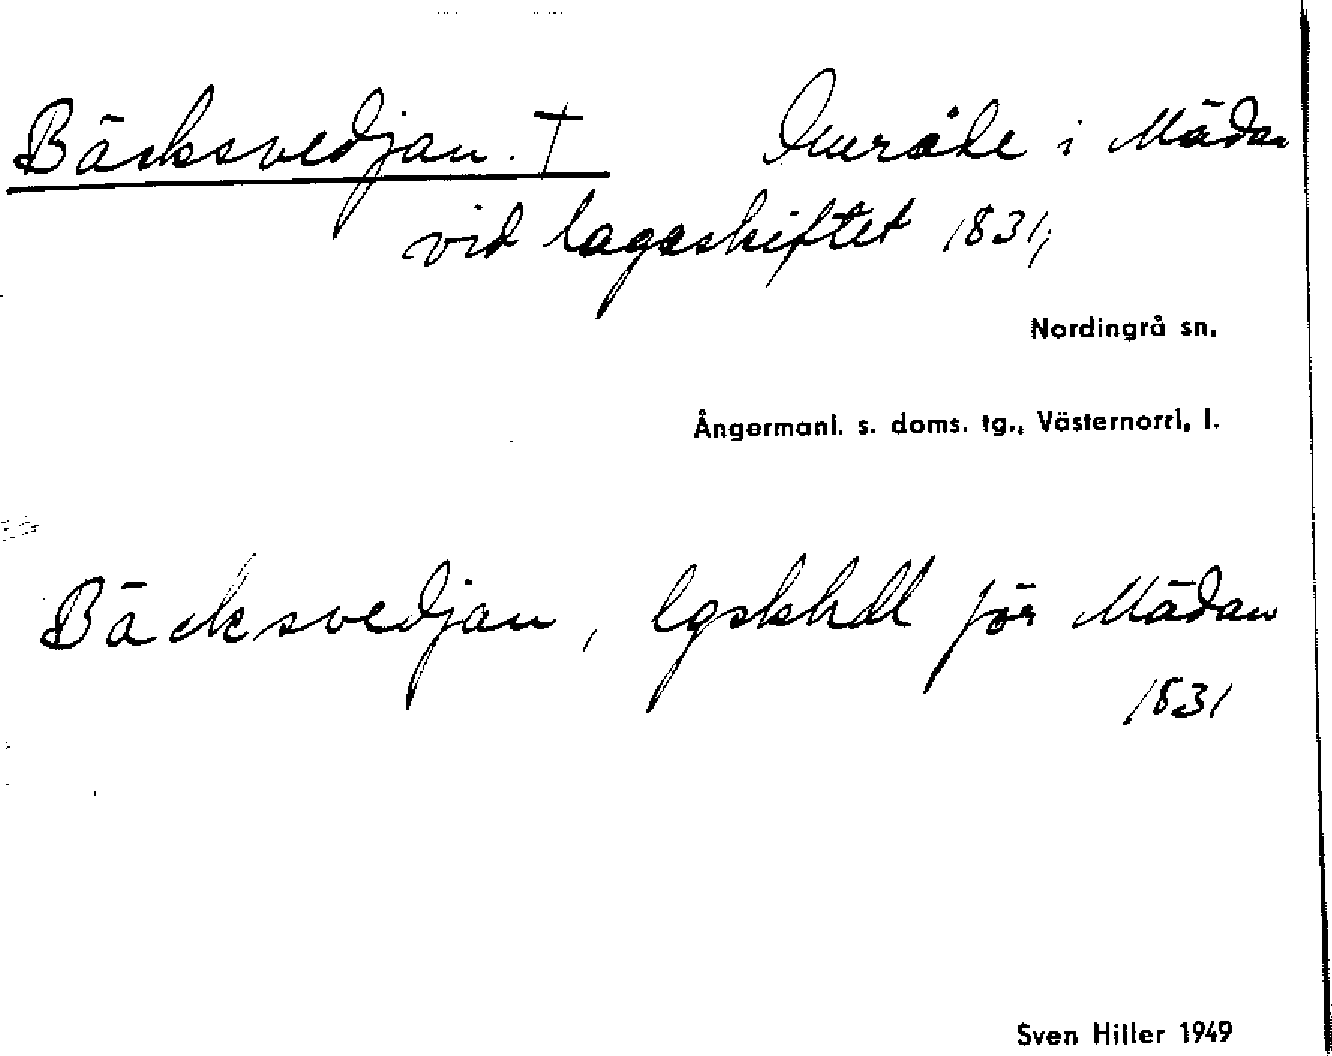 Bäcksvedjan. † Inuråke i Mädan
vid lagaskiftet 1831,
Nordingrå sn.
Ångermanl. s. doms. tg., Västernorrl. l.
Bäcksvedjan, lgskhdl för Mädan
1831
Sven Hiller 1949